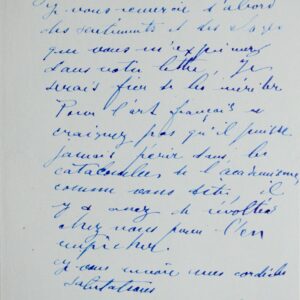 Je vous remercie d'abord
des sentiments et des éloges
que vous m'exprimez
dans votre lettre, Je
serais fier de les mériter
Pour l'art français ne
craignez pas qu'il puisse
jamais périr dans les
catacombes de l'académisme
comme vous dites, il
y a assez de révoltés
chez nous pour l'en
empêcher.
Je vous envoie mes cordiales
salutations